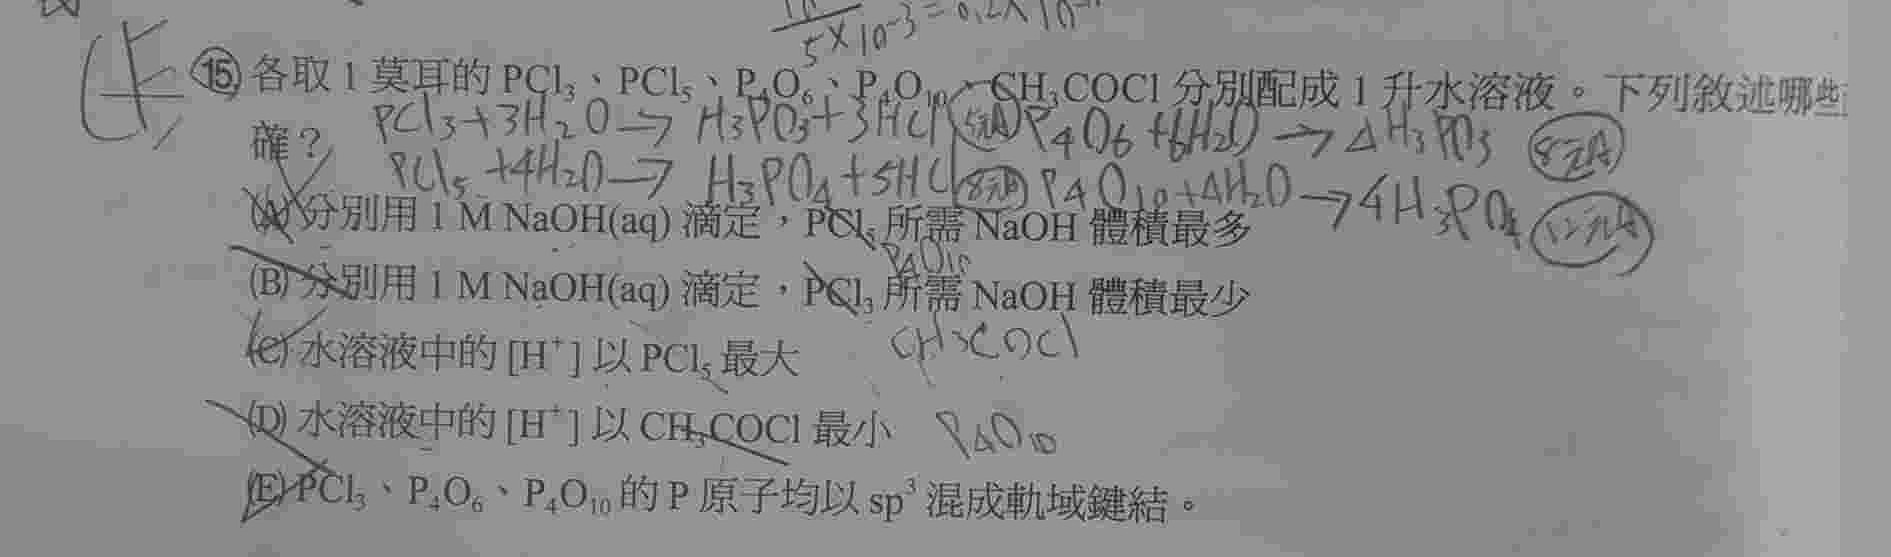 5×10⁻³ = 0.2×10
⑮ 各取 1 莫耳的 PCl₃、PCl₅、P₄O₆、P₄O₁₀、CH₃COCl 分別配成 1 升水溶液。下列敘述哪些
PCl₃+3H₂O→H₃PO₃+3HCl P₄O₆+6H₂O→4H₃PO₃ 8元A
確?
PCl₅+4H₂O→H₃PO₄+5HCl 8元A P₄O₁₀+4H₂O→4H₃PO₄ 12元A
(A) 分別用 1 M NaOH(aq) 滴定,PCl₅ 所需 NaOH 體積最多
P₄O₁₀
(B) 分別用 1 M NaOH(aq) 滴定,PCl₃ 所需 NaOH 體積最少
CH₃COCl
(C) 水溶液中的 [H⁺] 以 PCl₅ 最大
(D) 水溶液中的 [H⁺] 以 CH₃COCl 最小 P₄O₁₀
(E) PCl₃、P₄O₆、P₄O₁₀ 的 P 原子均以 sp³ 混成軌域鍵結。